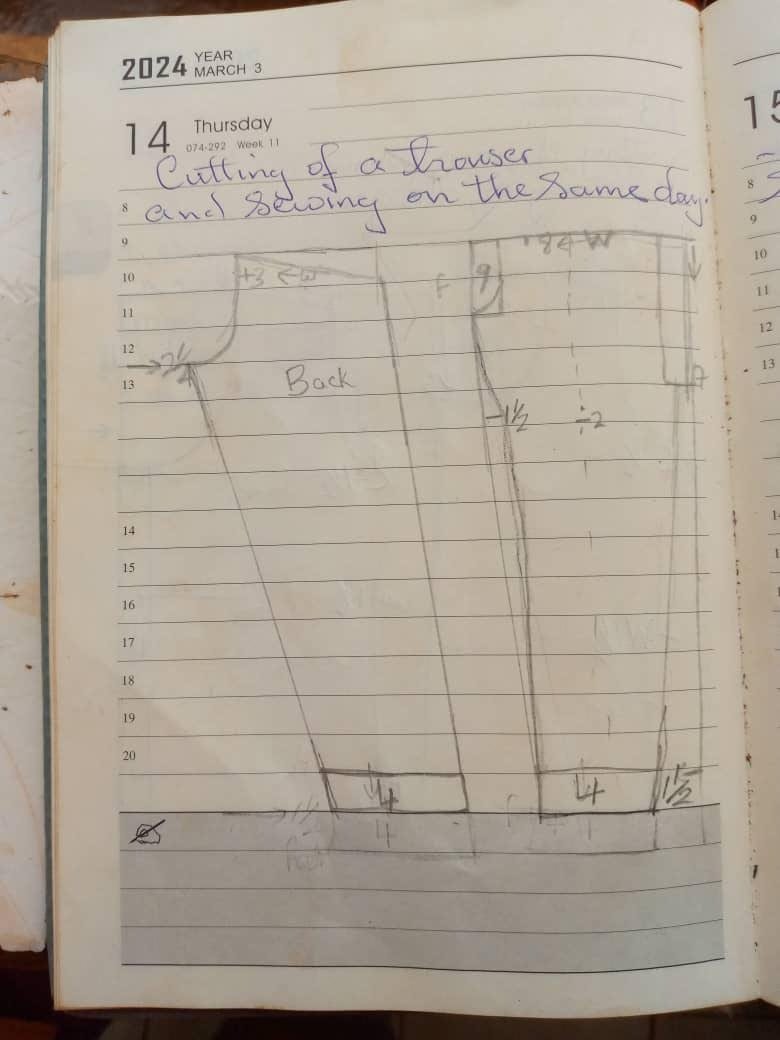 2024 YEAR
MARCH 3
14 Thursday
074-292 Week 11
15
Cutting of a trouser
and Sewing on the Same day.
8
9
10
11
12
13
14
15
16
17
18
19
20
+3 ← W
Back
f
9
W
7
-1½
÷2
4
4
1½
4
8
9
10
11
12
13